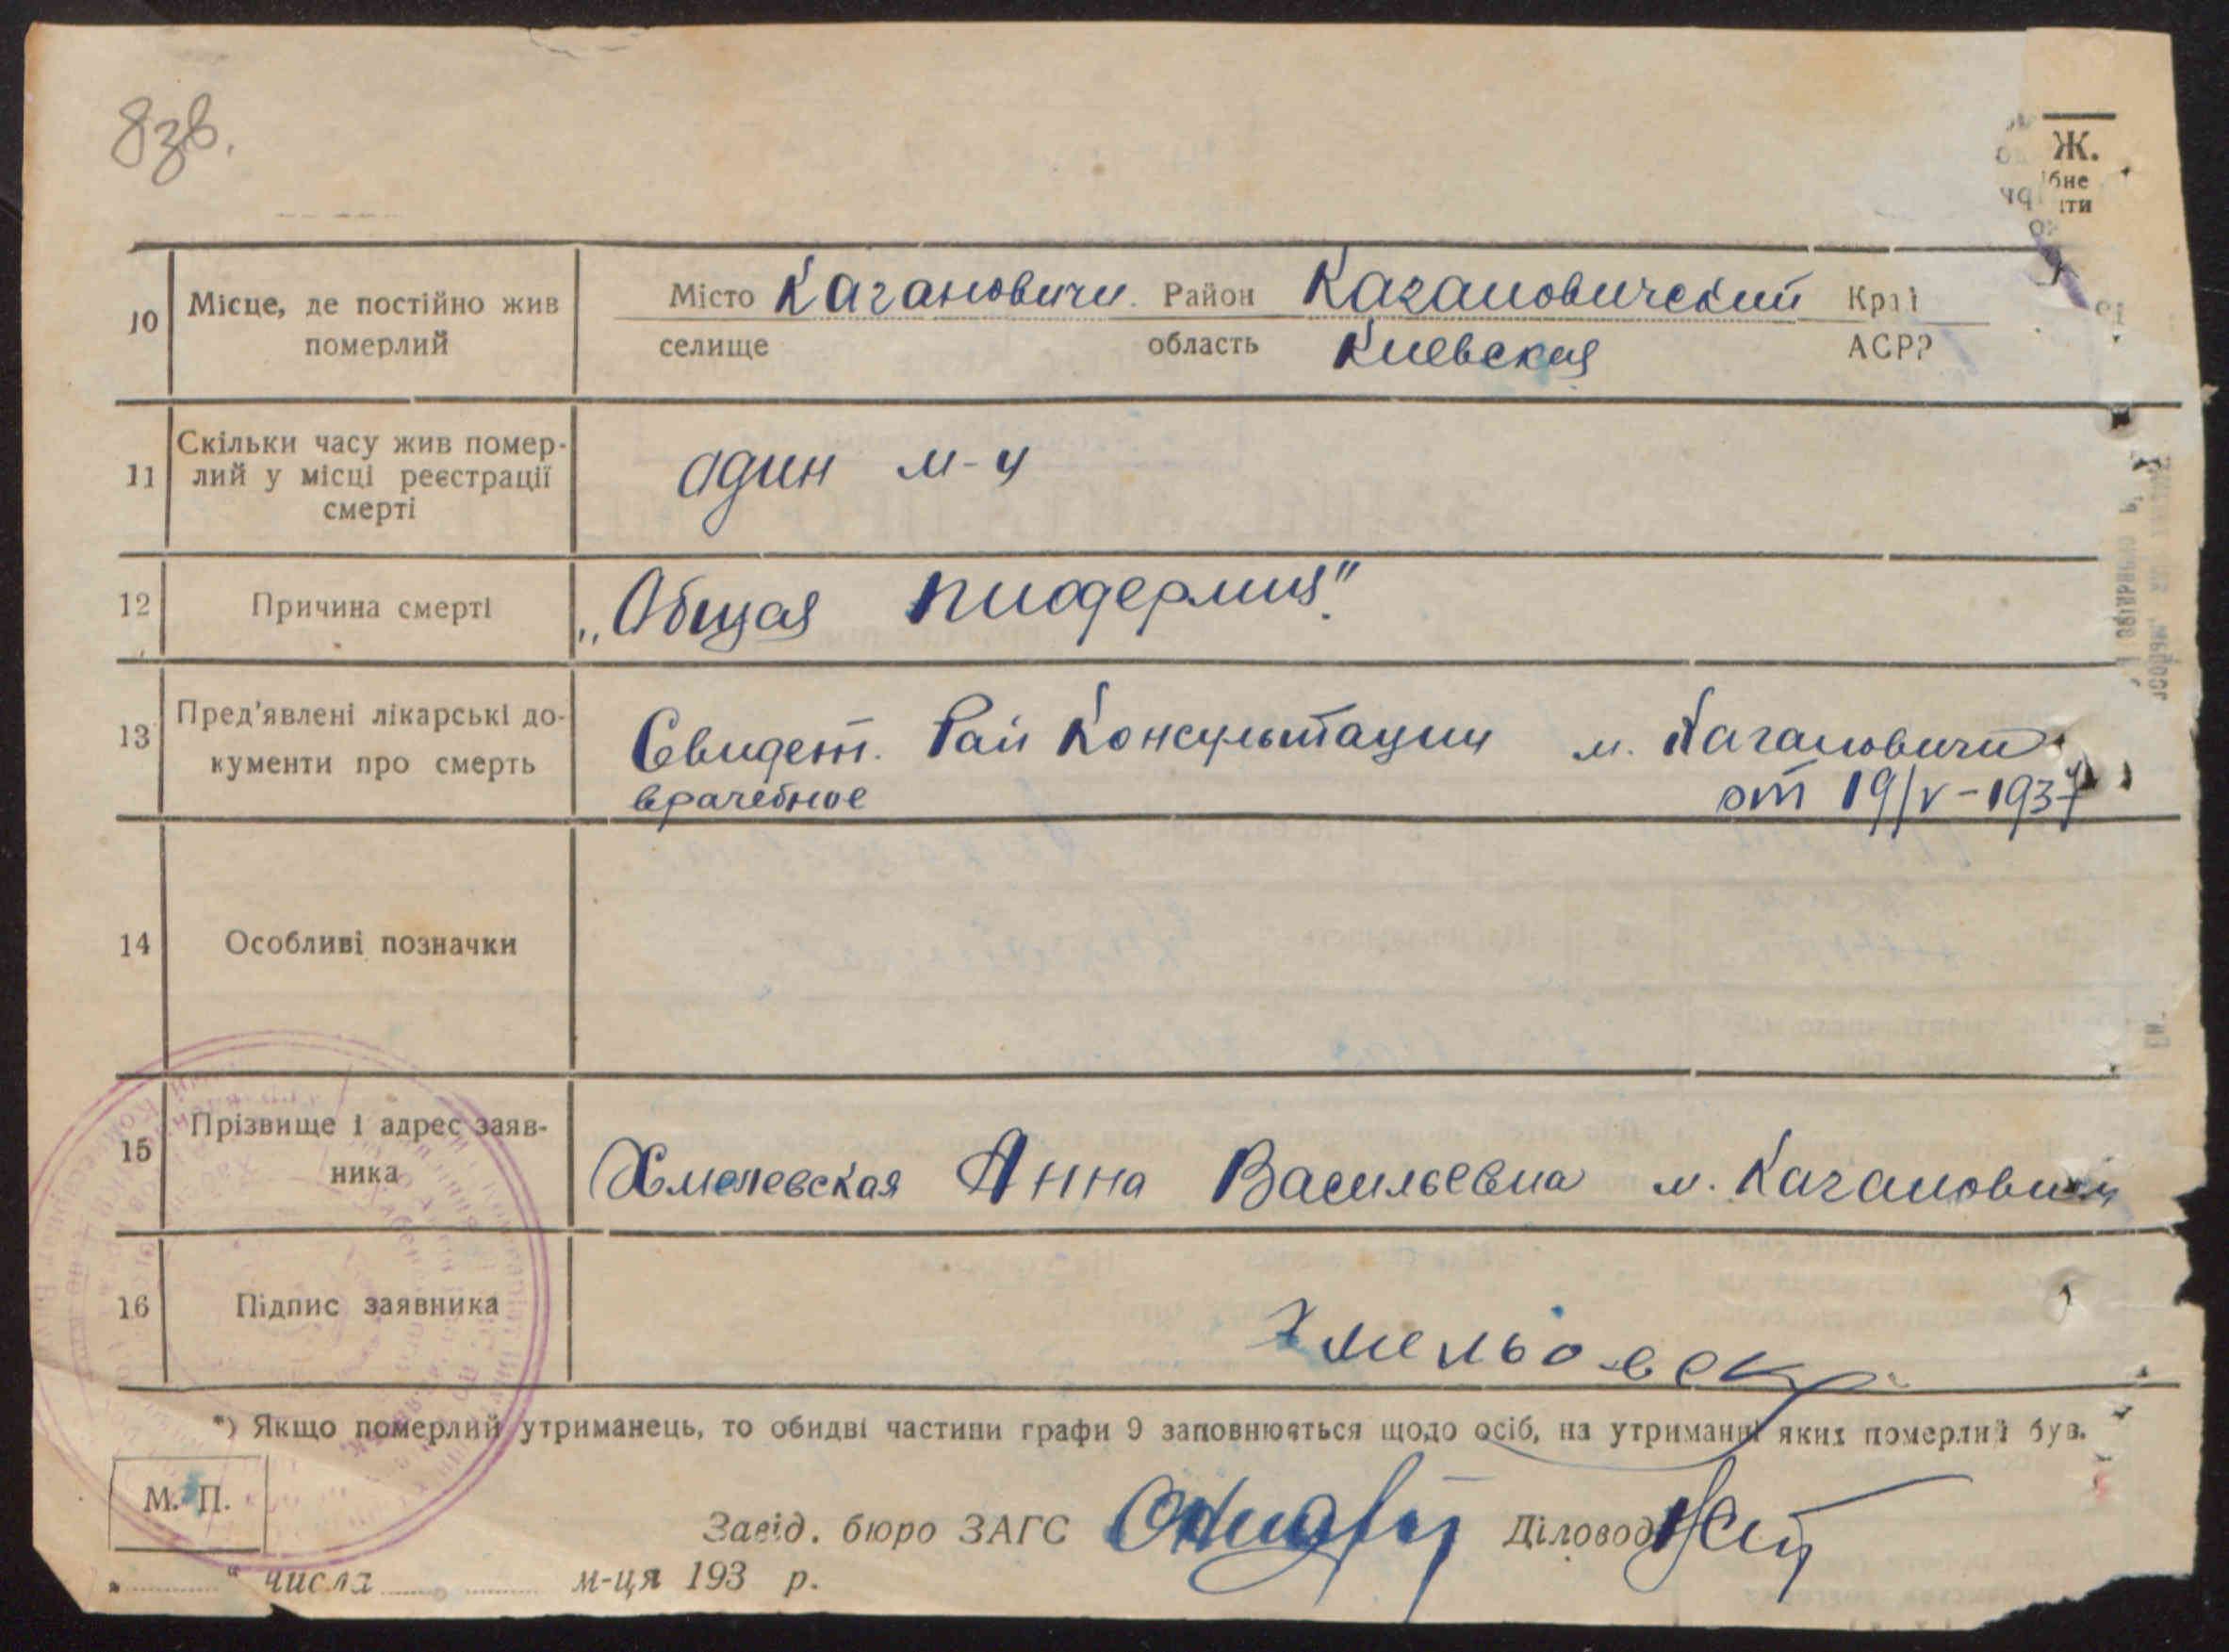 8зв.
Ж.
10 Місце, де постійно жив померлий
Місто Кагановичи. Район Кагановический Край
селище область Киевская АСРР
11 Скільки часу жив помер-
лий у місці реєстрації
смерті
один м-ц
12 Причина смерті „Общая пиодермия".
13 Пред'явлені лікарські до-
кументи про смерть
Свидет. Рай Консультации м. Кагановичи
врачебное от 19/V-1937
14 Особливі позначки
15 Прізвище і адрес заяв-
ника
Хмелевская Анна Васильевна м. Кагановичи
16 Підпис заявника
*) Якщо померлий утриманець, то обидві частини графи 9 заповнюється щодо осіб, на утриманні яких померлий був.
М. П.
Завід. бюро ЗАГС Діловод
„ " числа м-ця 193 р.